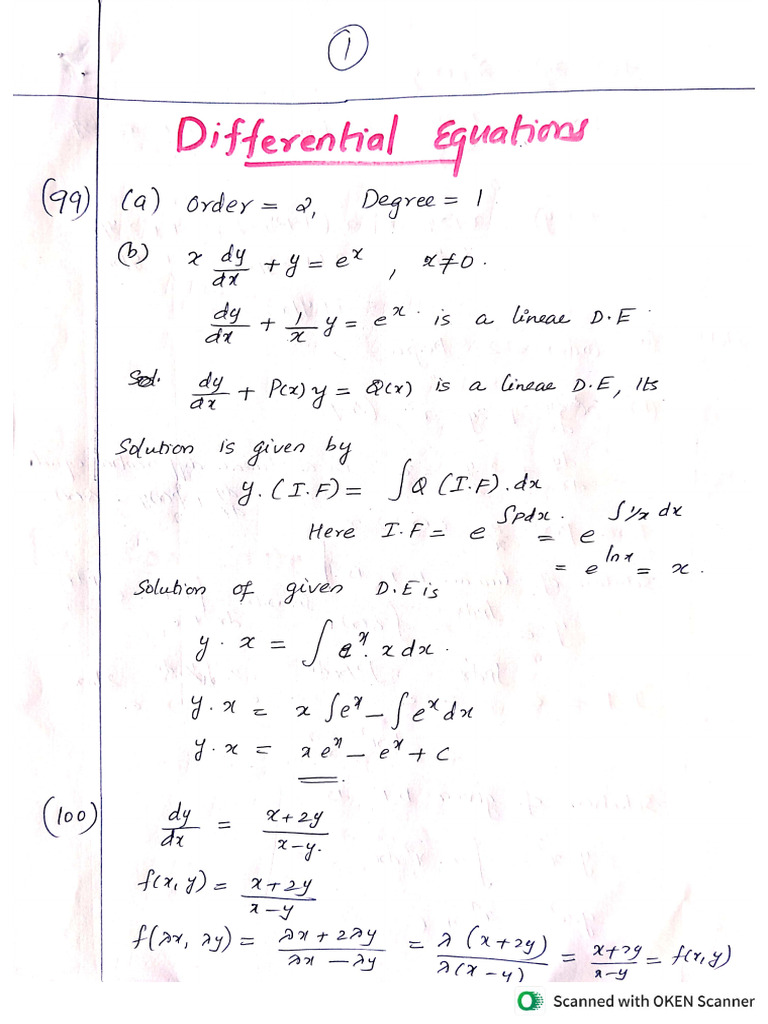 1
Differential Equations
(99) (a) Order = 2, Degree = 1
(b) x dy/dx + y = e^x , x≠0.
dy/dx + 1/x y = e^x. is a linear D.E
Sol. dy/dx + P(x) y = Q(x) is a linear D.E, Its
Solution is given by
y.(I.F) = ∫Q (I.F).dx
Here I.F = e^∫Pdx. = e^∫1/x dx
= e^ln x = x.
Solution of given D.E is
y. x = ∫ e^x. x dx.
y. x = x ∫e^x – ∫e^x dx
y. x = x e^x – e^x + C
(100) dy/dx = x+2y/x–y.
f(x, y) = x+2y/x–y
f(λx, λy) = λx + 2λy/λx – λy = λ (x+2y)/λ(x–y) = x+2y/x–y = f(x,y)
Scanned with OKEN Scanner